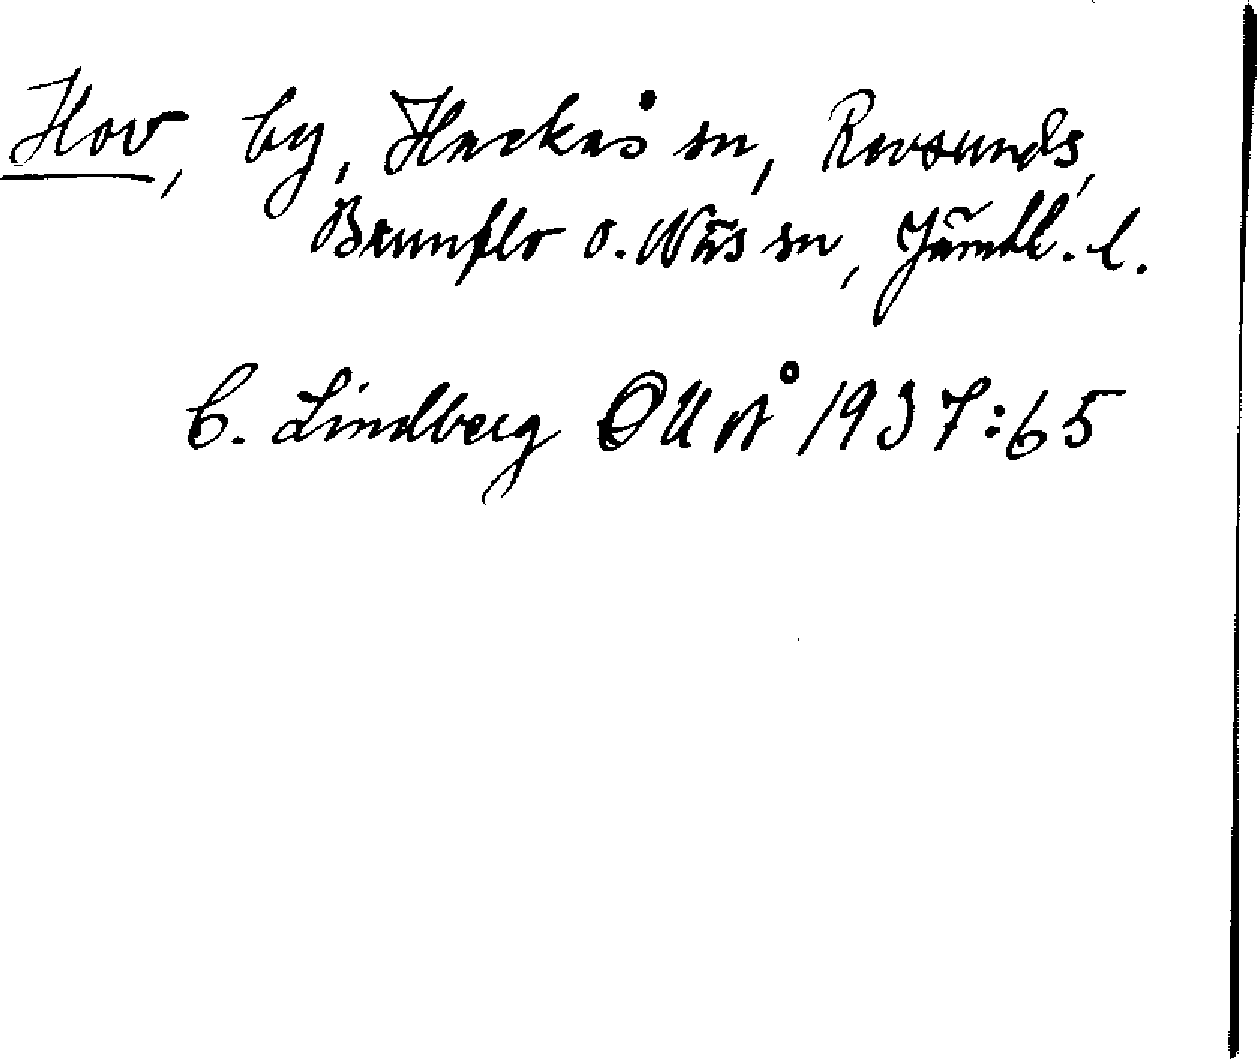 Hov, by, Hackås sn, Revsunds,
Brunflo o. Näs sn, Jämtl. l.
C. Lindberg OUÅ 1937:65